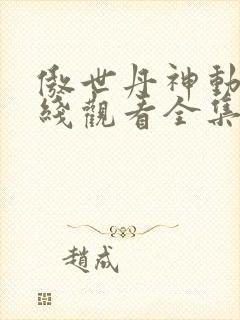 傲世丹神動
綫觀看全集
趙成